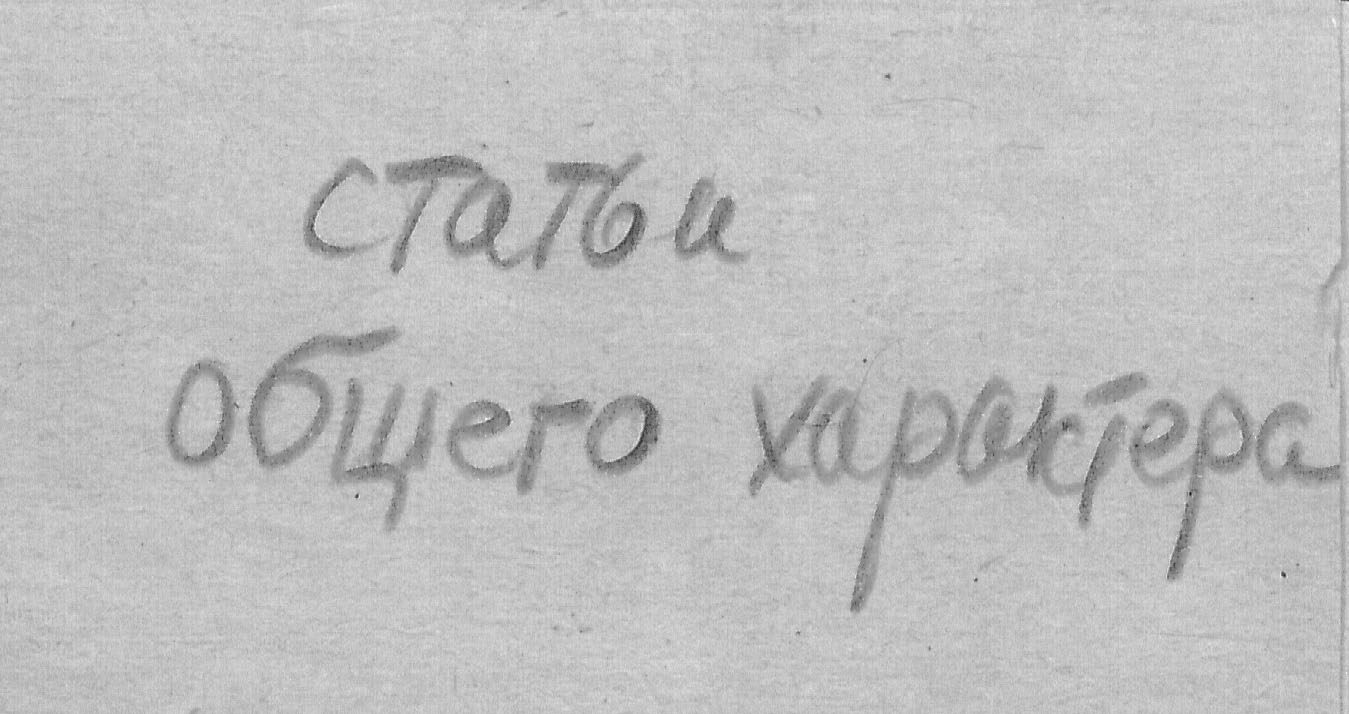 статьи
общего характера